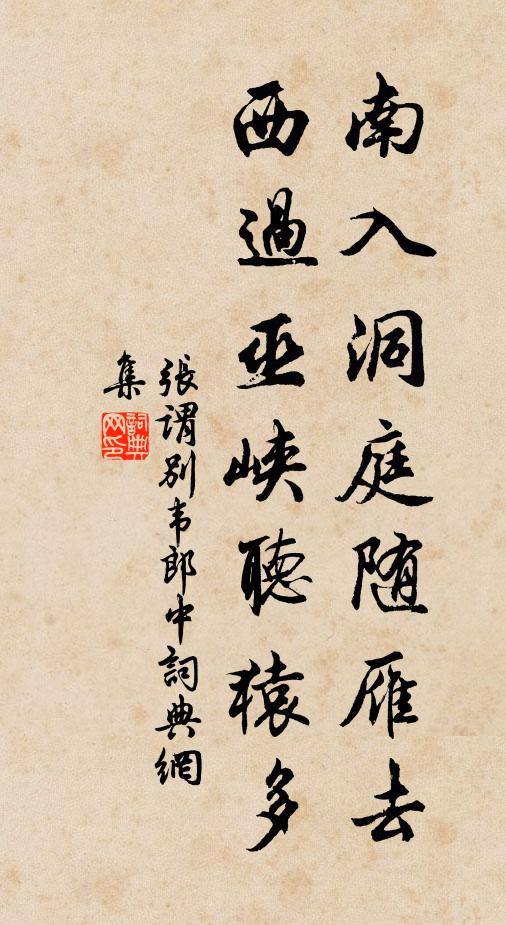 南入洞庭随雁去
西過巫峽聽猿多
張谓别韦郎中詞典網
集
詞典
网印